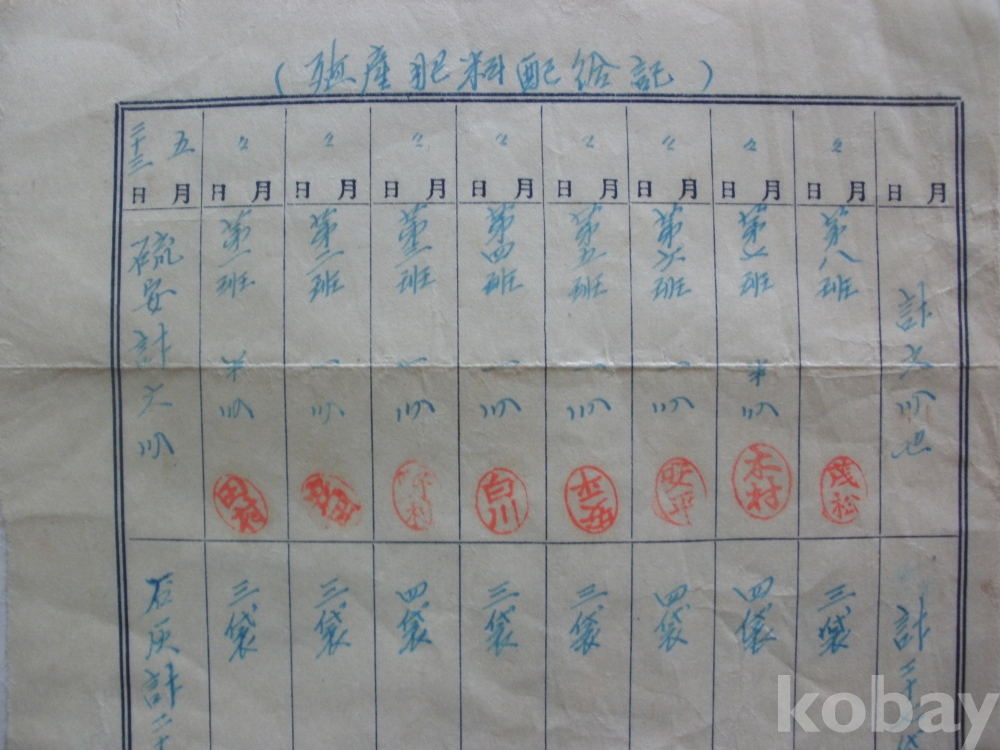 (殖産肥料配給記)
五月 二十三日
〃月 日
〃月 日
〃月 日
〃月 日
〃月 日
〃月 日
〃月 日
〃月 日
月 日
硫安計六叺
第一班 半叺
第二班 一叺
第三班 一叺
第四班 一叺
第五班 一叺
第六班 一叺
第 班 半叺
第八班
計六叺也
白川
木村
茂松
石灰計二十
三袋
三袋
四袋
三袋
三袋
四袋
四袋
三袋
計二十
kobay